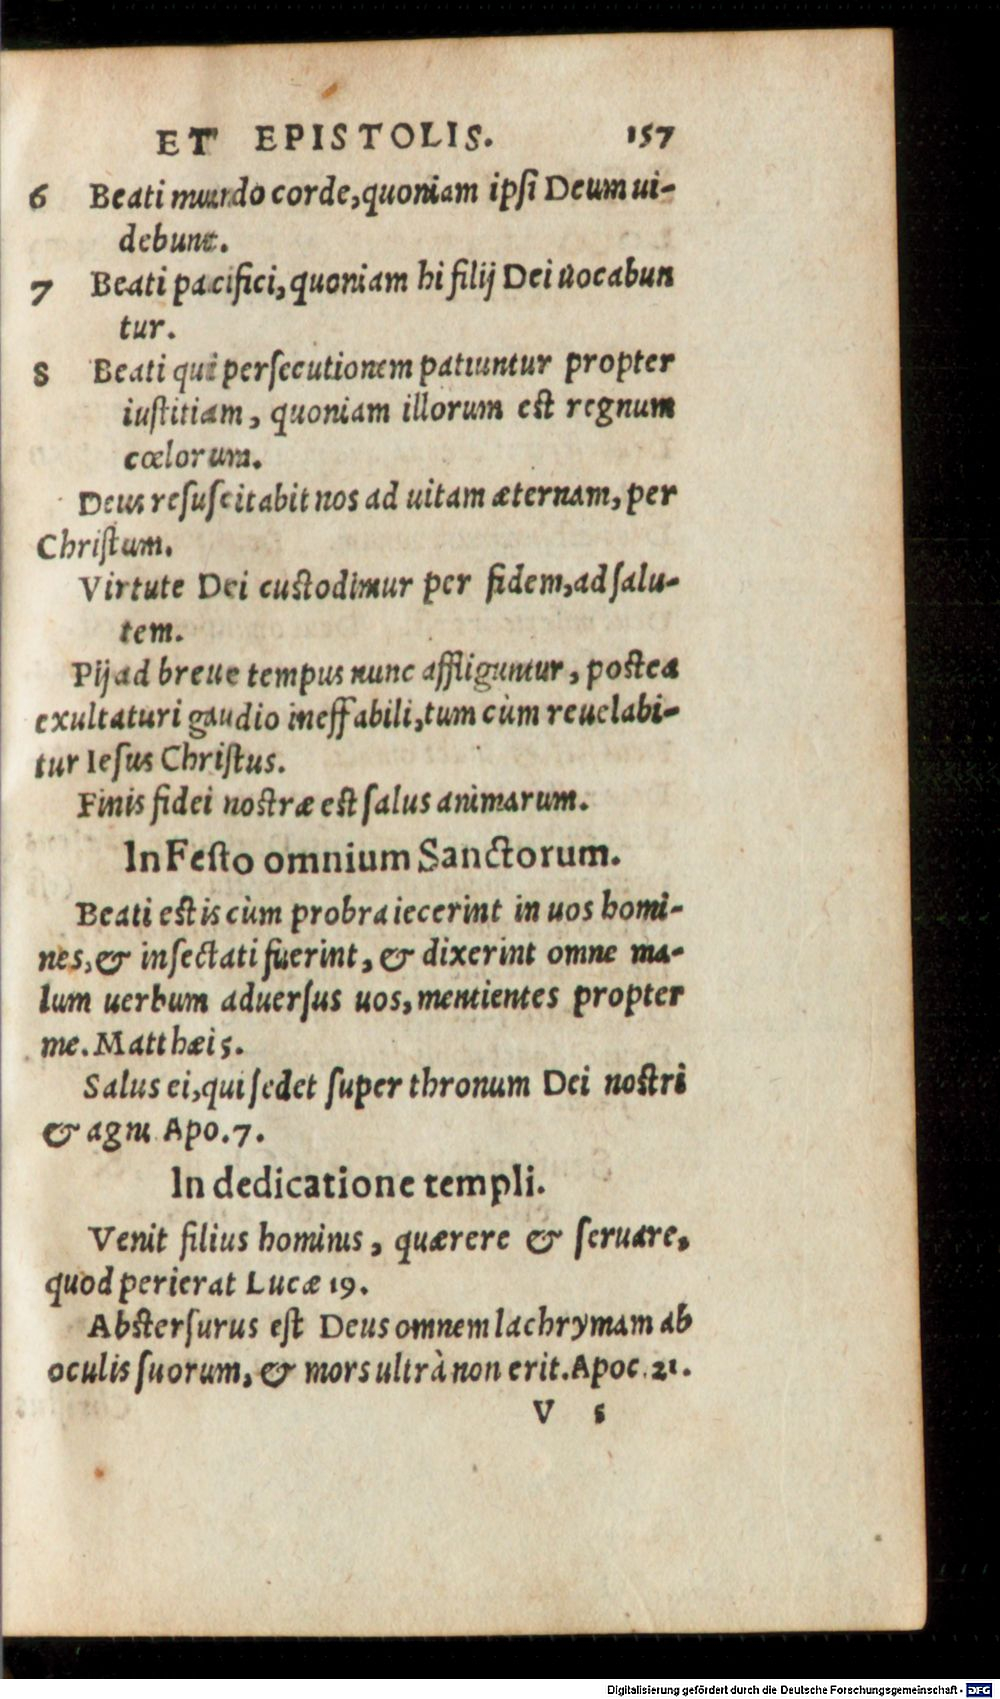 ET EPISTOLIS. 157
6 Beati mundo corde, quoniam ipsi Deum ui-
debunt.
7 Beati pacifici, quoniam hi filij Dei uocabun
tur.
8 Beati qui persecutionem patiuntur propter
iustitiam, quoniam illorum est regnum
cœlorum.
Deus resuscitabit nos ad uitam æternam, per
Christum.
Virtute Dei custodimur per fidem, ad salu-
tem.
Pij ad breue tempus nunc affliguntur, postea
exultaturi gaudio ineffabili, tum cùm reuelabi-
tur Iesus Christus.
Finis fidei nostræ est salus animarum.
In Festo omnium Sanctorum.
Beati estis cùm probra iecerint in uos homi-
nes, & insectati fuerint, & dixerint omne ma-
lum uerbum aduersus uos, mentientes propter
me. Matthæi 5.
Salus ei, qui sedet super thronum Dei nostri
& agni Apo. 7.
In dedicatione templi.
Venit filius hominis, quærere & seruare,
quod perierat Lucæ 19.
Abstersurus est Deus omnem lachrymam ab
oculis suorum, & mors ultrà non erit. Apoc. 21.
V 5
Digitalisierung gefördert durch die Deutsche Forschungsgemeinschaft - DFG